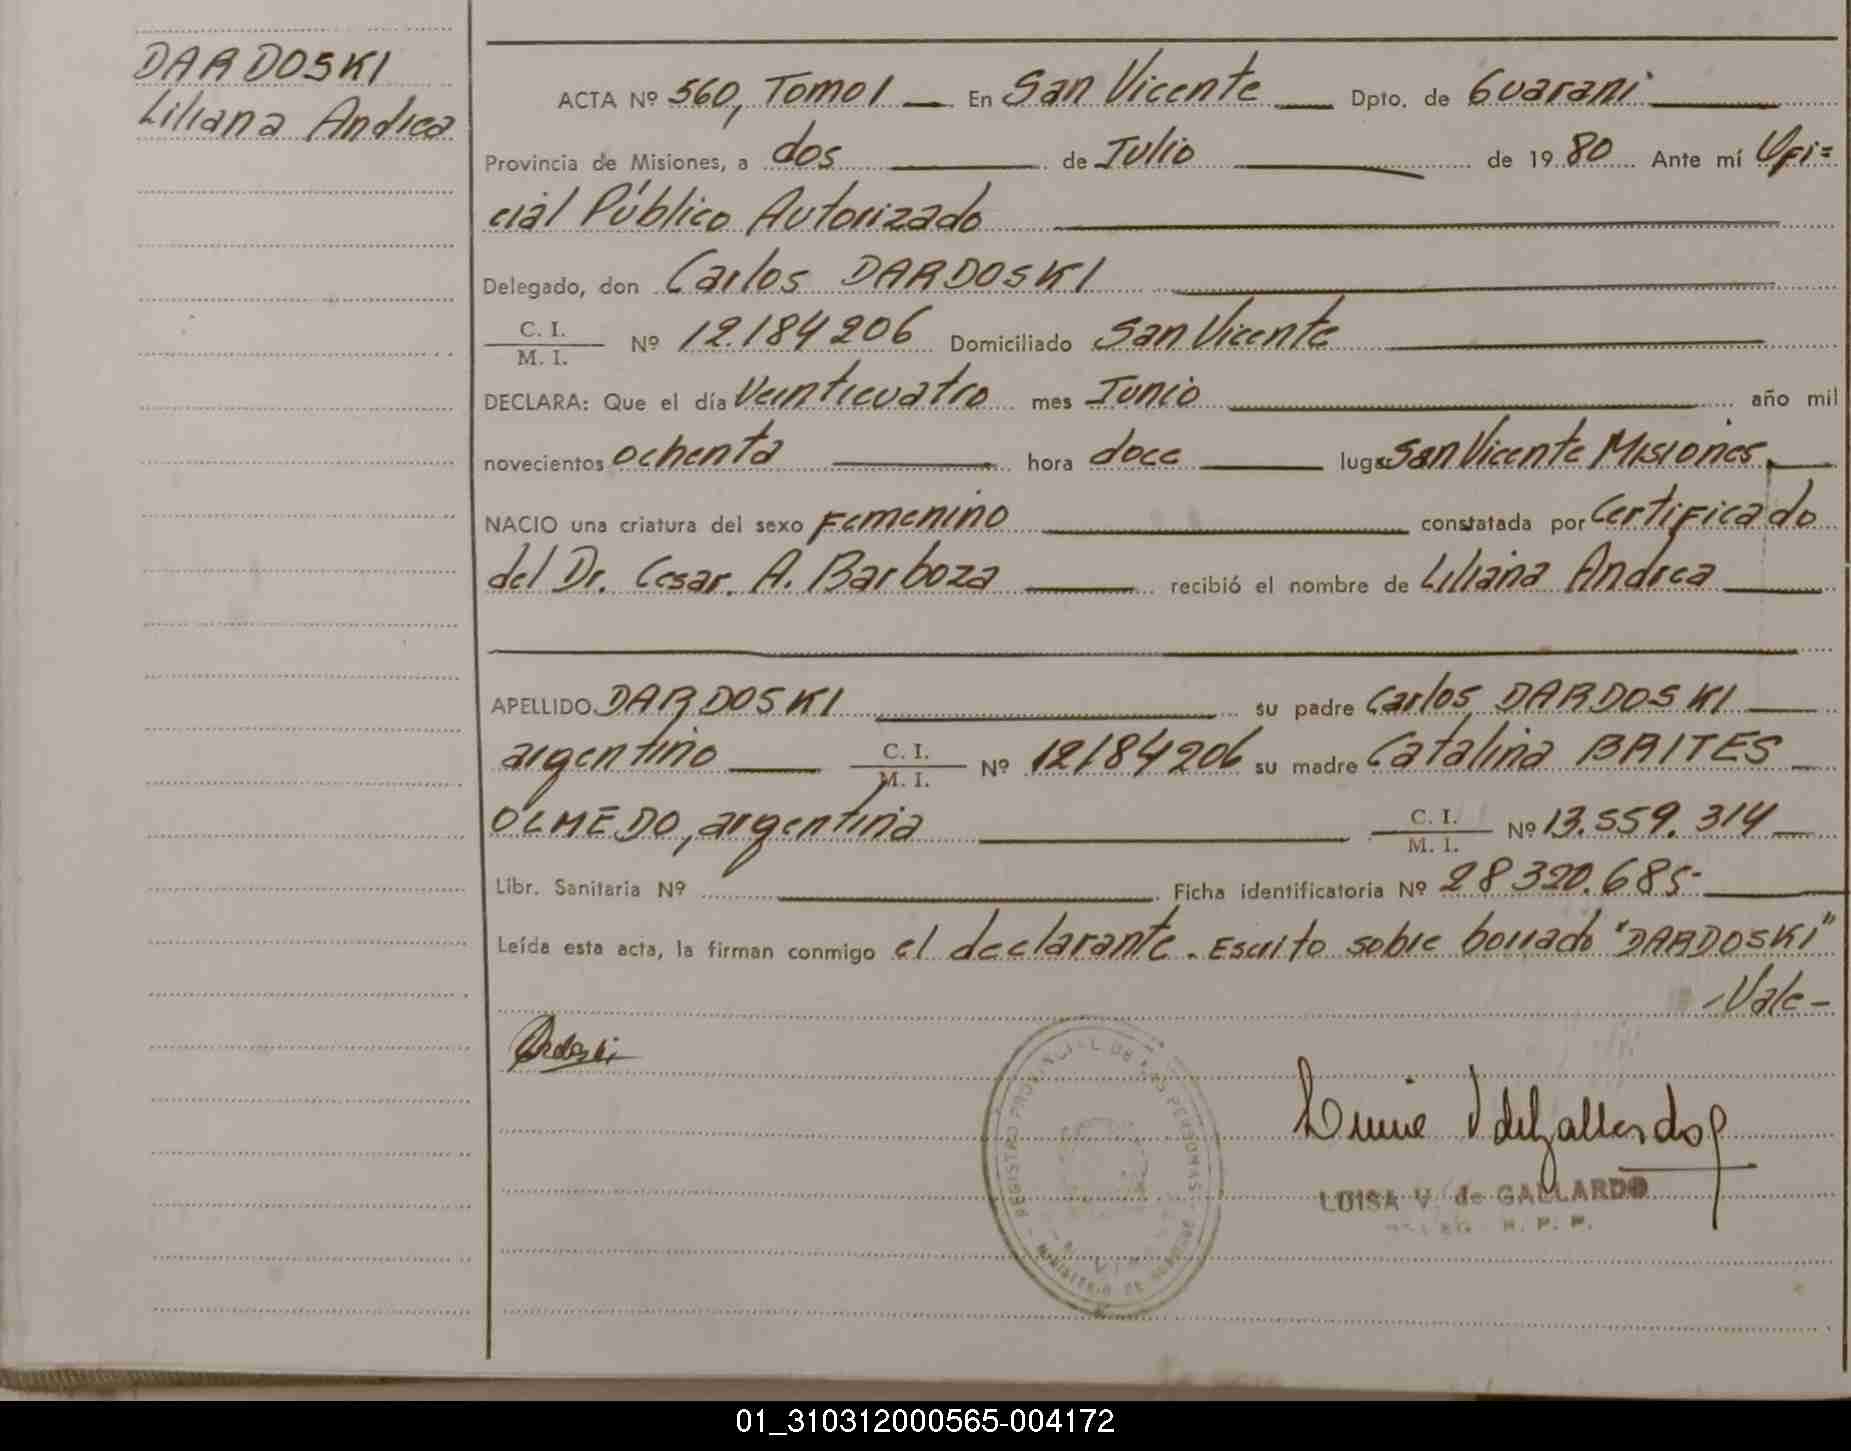 DARDOSKI
Liliana Andrea
ACTA Nº 560, Tomo I En San Vicente Dpto. de Guarani
Provincia de Misiones, a dos de Julio de 1980 Ante mí Ofi=
cial Público Autorizado
Delegado, don Carlos DARDOSKI
C. I.
M. I. Nº 12.184206 Domiciliado San Vicente
DECLARA: Que el día Veinticuatro mes Junio año mil
novecientos ochenta hora doce lugar San Vicente Misiones
NACIO una criatura del sexo Femenino constatada por Certificado
del Dr. Cesar. A. Barboza recibió el nombre de Liliana Andrea
APELLIDO DARDOSKI su padre Carlos DARDOSKI
argentino C. I.
M. I. Nº 12184206 su madre Catalina BRITES
OLMEDO, argentina C. I.
M. I. Nº 13.559.314
Libr. Sanitaria Nº Ficha identificatoria Nº 28320.685-
Leída esta acta, la firman conmigo el declarante. Escrito sobre borrado "DARDOSKI"
-Vale-
REGISTRO PROVINCIAL DE LAS PERSONAS
MINISTERIO DE GOBIERNO
LUISA V. de GALLARDO
R. P. P.
01_310312000565-004172